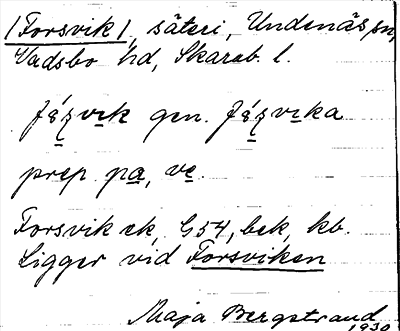 (Forsvik), säteri, Undenäs sn,
Vadsbo hd, Skarab. l.
gen.
prep. pa, ve.
Forsvik ek. G54, bek, kb.
Ligger vid Forsviken
Maja Bergstrand
1930